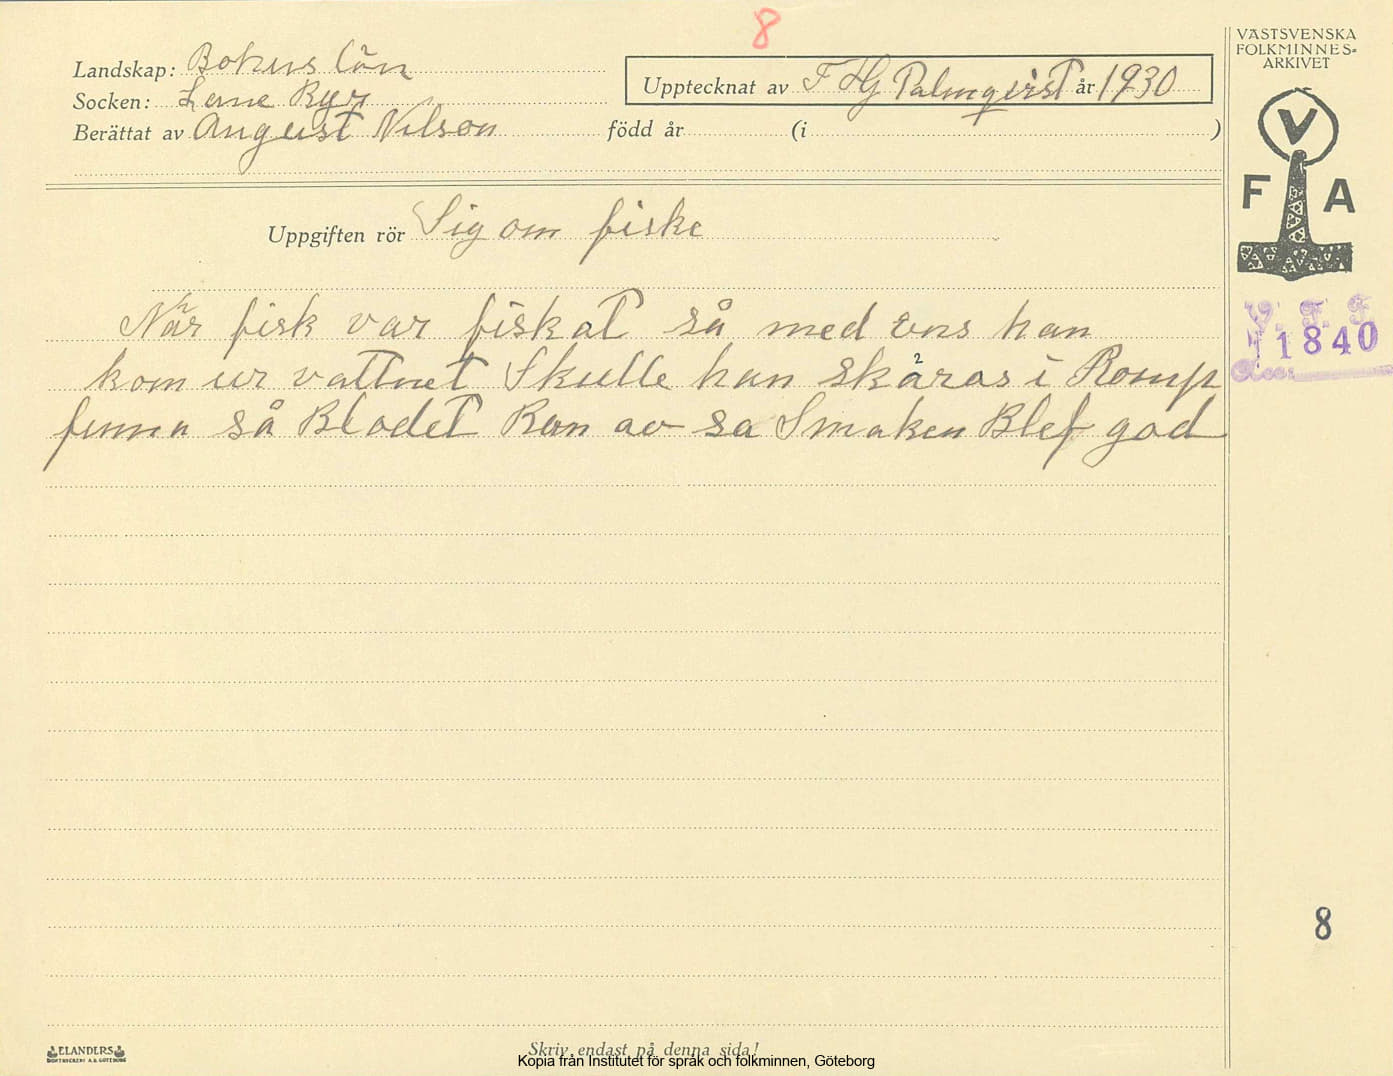 8
VÄSTSVENSKA
FOLKMINNES-
ARKIVET
Landskap: Bohus län
Upptecknat av F Hj Palmqvist år 1930
Socken: Lane Ryr
Berättat av August Nilson född år (i )
V
F A
Uppgiften rör Sig om fiske
V. F. F.
1840
När fisk var fiskat så med ens han
kom ur vattnet Skulle han skäras i Romp
fenna så Blodet Ran av sa Smaken Blef god
8
ELANDERS
BOKTRYCKERI A.B. GÖTEBORG
Skriv endast på denna sida!
Kopia från Institutet för språk och folkminnen, Göteborg